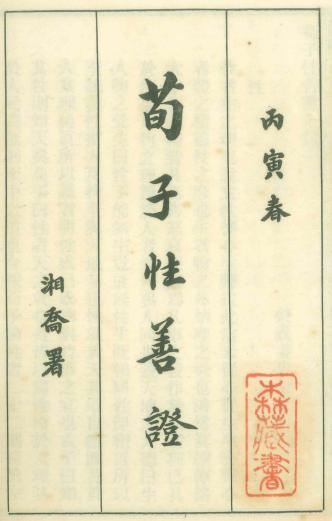 丙寅春
荀子性善證
湘喬署